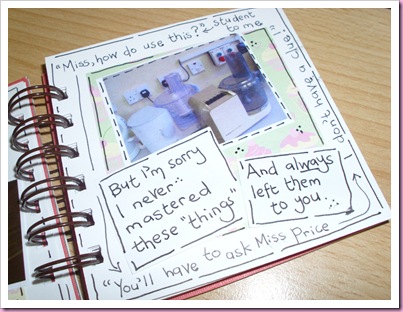 "Miss, how do use this?" ← student to me
But I'm sorry
I never
mastered
these "things"
And always
left them
to you
don't have a clue!
"You'll have to ask Miss Price